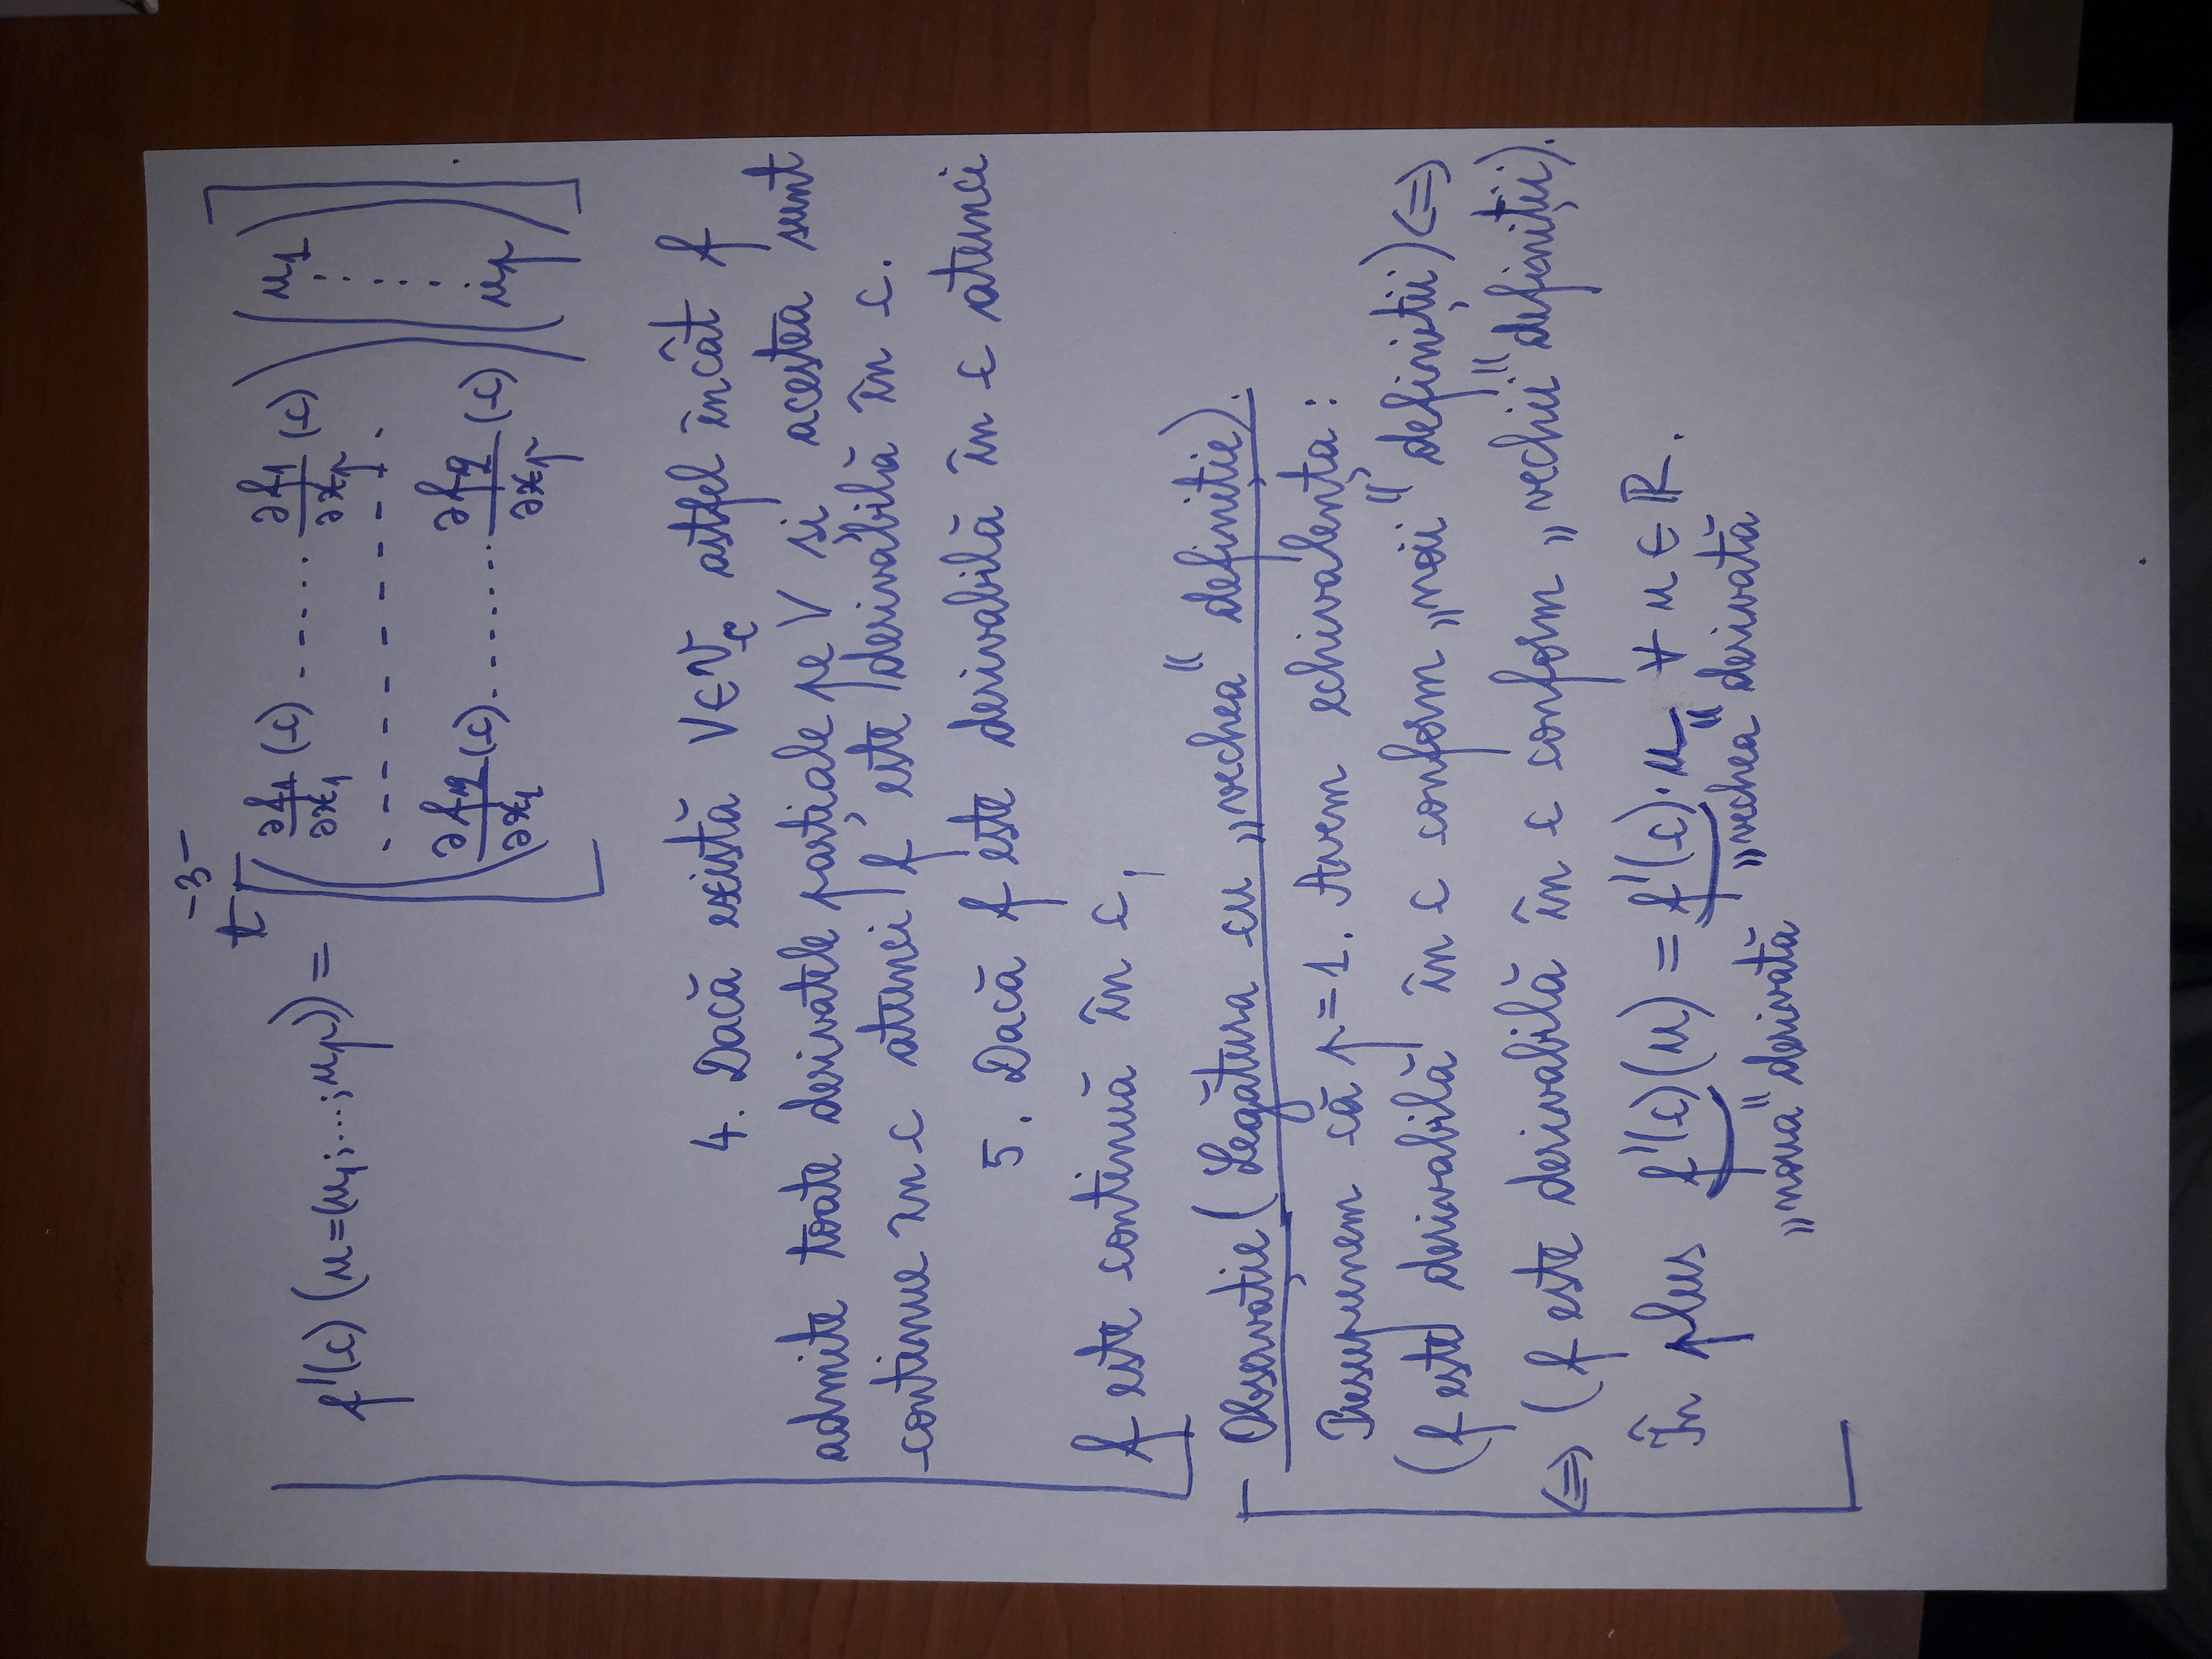 -3-
f'(c)(u=(u₁;...;uₚ)) = ᵗ[(∂f₁/∂x₁ (c) ------ ∂f₁/∂xₚ (c)) (u₁
- - - - - - - - - - - ⋮
∂f_q/∂x₁ (c) ------- ∂f_q/∂xₚ (c)) uₚ)].
4. Dacă există V∈𝒱_c astfel încât f
admite toate derivatele parțiale pe V și acestea sunt
continue în c atunci f este derivabilă în c.
5. Dacă f este derivabilă în c atunci
f este continuă în c.
Observație (Legătura cu „vechea" definiție).
Presupunem că p=1. Avem echivalența:
(f este derivabilă în c conform „noii" definiții) <=>
<=> (f este derivabilă în c conform „vechii" definiții).
În plus f'(c)(u) = f'(c)·u ∀ u ∈ ℝ.
„noua" derivată „vechea" derivată